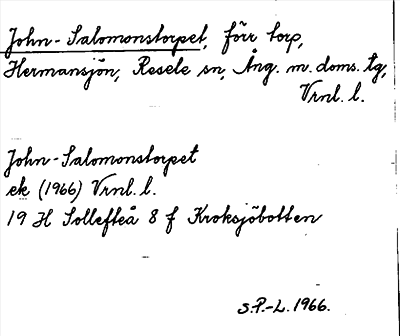 John-Salomonstorpet, förr torp,
Hermansjön, Resele sn, Ång. m. doms. tg,
Vrnl. l.
John-Salomonstorpet
ek (1966) Vrnl. l.
19 H Sollefteå 8 f Kroksjöbotten
S.P.-L. 1966.